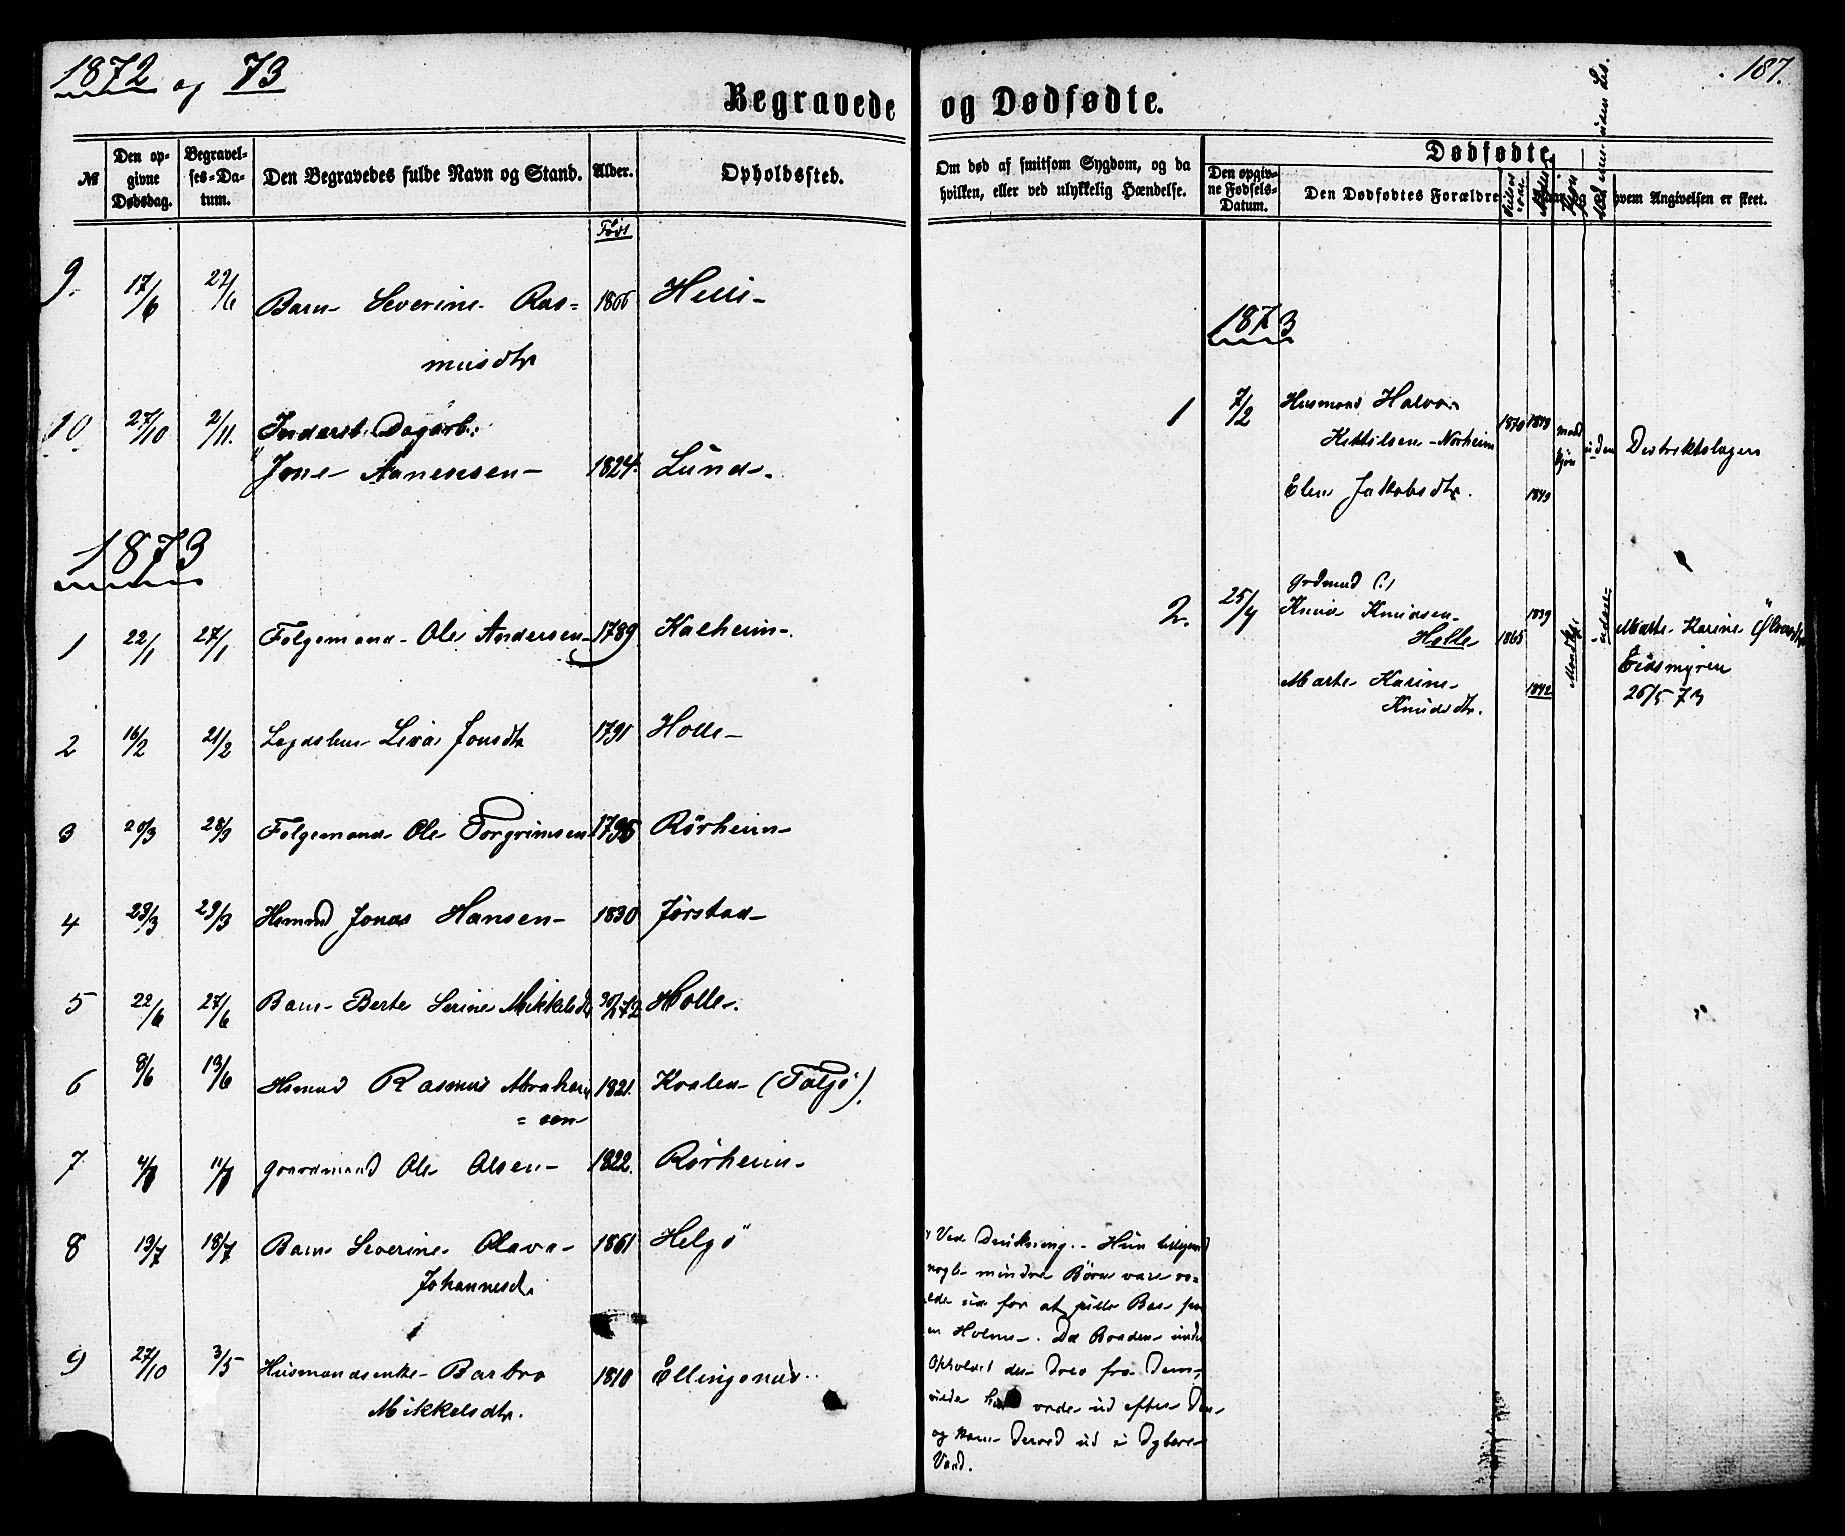 1872 og 73
187.
Begravede og Dødfødte.
№ Den opgivne Dødsdag. Begravelses-Datum. Den Begravedes fulde Navn og Stand. Alder. Opholdssted.
Om død af smitsom Sygdom, og da hvilken, eller ved ulykkelig Hændelse.
Dødfødte
Den opgivne Fødsels-Datum. Den Dødfødtes Forældre hvem Angivelsen er skeet.
Født
9. 17/6 22/6 Barn Severine Ras= 1866 Helle
musdtr
10 27/10 2/11. Inderst. Dagarb:
Jone Aanensen 1824. Lunde.
1873
1 22/1 27/1 Følgemand Ole Andersen 1789 Kalheim.
2 16/2 21/2 Lægdslem Liva Jonsdtr 1791 Holle
3 20/3 28/3 Følgemand Ole Torgrimsen 1795 Rørheim
4 23/3 29/3 Hsmnd Jonas Hansen 1830 Jørstad
5 22/6 27/6 Barn Berte Serine Mikkelsdtr 72 Holle.
6 8/6 13/6 Hsmand Rasmus Abraham 1821. Kvalen (Talgø).
=sen
7 4/8 11/8 Gaardmand Ole Olsen 1822. Rørheim
8 13/7 18/7 Barn Severine Olava 1861 Helgø
Johannesd.
9 27/10 3/5 Husmandsenke Barbro 1810 Ellingsnæs.
Mikkelsdtr.
Ved Drukning. Hun tilligemed
nogle mindre Børn vare ro=
ede ud for at pille Bær paa
en Holme. Da Baaden under
Opholdet der drev fra dem,
vilde hun vade ud efter den
og kom derved ud i dybere
Vand.
1873
1 7/2 Husmand Halvor
Kittilsen Norheim 1870 1849 uden Distriktslægen
Elen Jakobsdtr. 1849
2. 25/4 Grdmnd (:)
Knud Knudsen 1839
Holle 1865 Marte Karine
Marte Karine 1842 Eidsmyren
Knudsdtr. 26/5 73